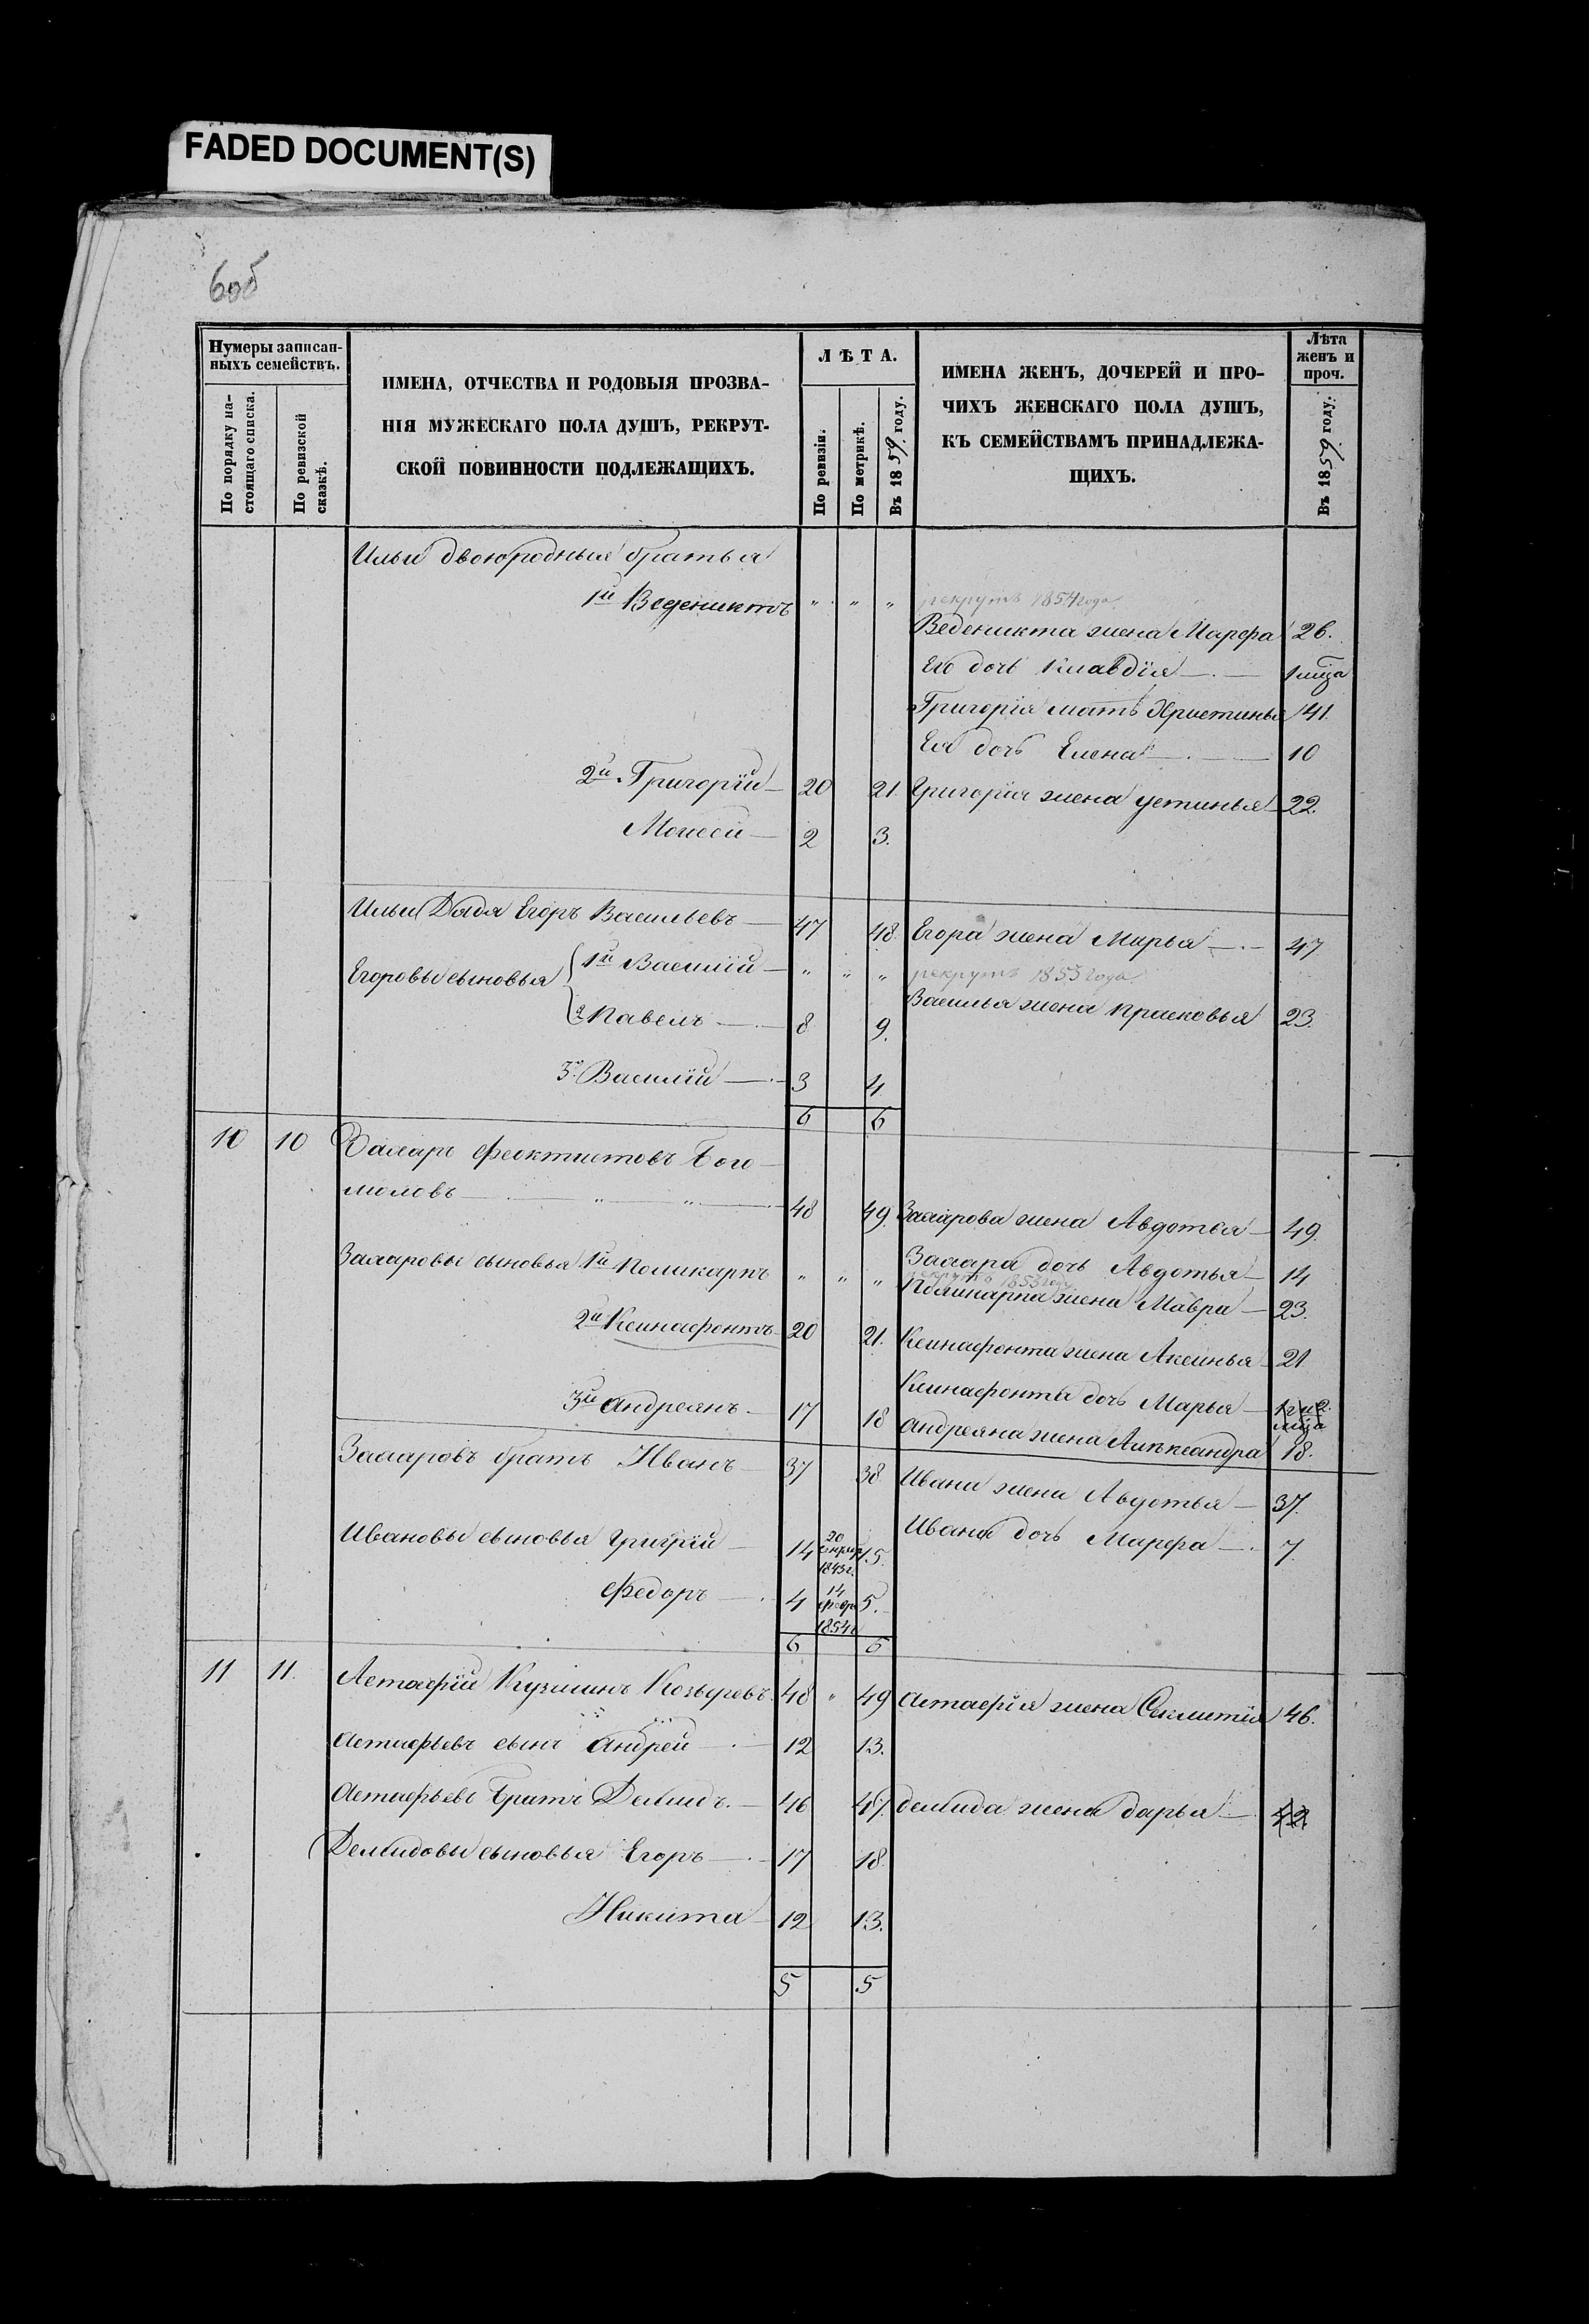 FADED DOCUMENT(S)
60об
Нумеры записан-
ныхъ семействъ.
По порядку на-
стоящаго списка.
По ревизской
сказкѣ.
ИМЕНА, ОТЧЕСТВА И РОДОВЫЯ ПРОЗВА-
НІЯ МУЖЕСКАГО ПОЛА ДУШЪ, РЕКРУТ-
СКОЙ ПОВИННОСТИ ПОДЛЕЖАЩИХЪ.
ЛѢТА.
По ревизіи.
По метрикѣ.
Въ 1859 году.
ИМЕНА ЖЕНЪ, ДОЧЕРЕЙ И ПРО-
ЧИХЪ ЖЕНСКАГО ПОЛА ДУШЪ,
КЪ СЕМЕЙСТВАМЪ ПРИНАДЛЕЖА-
ЩИХЪ.
Лѣта
женъ и
проч.
Въ 1859 году.
Ильи двоюродныя братья
1й Веденихтъ " " " рекрутъ 1854 года
Веденикта жена Марфа 26.
Его дочь Клавдія 1 мѣца
Григорія мать Христинья 41.
Ея дочь Елена 10
2й Григорій 20 21. Григорія жена Устинья 22.
Моисей 2 3.
Ильи Дядя Егоръ Васильевъ 47 48. Егора жена Марья 47
Егоровы сыновья 1й Василій " " " рекрутъ 1853 года
Василья жена Прасковья 23.
2 Павелъ 8 9.
3й Василій 3 4
6 6
10 10 Захаръ Феоктистовъ Бого-
моловъ " " 48 49. Захарова жена Авдотья 49.
Захара дочь Авдотья 14
Захаровы сыновья 1й Поликарпъ " " " рекрутъ 1853 году
Поликарпа жена Мавра 23.
2й Ксинафонтъ 20 21. Ксинафонта жена Аксинья 21
Ксинафонта дочь Марья
3й Андреянъ 17 18 Андреяна жена Александра 18.
Захаровъ братъ Иванъ 37 38 Ивана жена Авдотья 37.
Ивановы сыновья Григрій 14 20 1843г. 15. Ивана дочь Марфа 7.
Федоръ 4 14 февр 1854г 5.
6 6
11 11. Астафій Кузминъ Козыревъ 48 " 49 Астафія жена Секлитія 46.
Астафьевъ сынъ Андрей 12 13.
Астафьевъ Братъ Демидъ. 46 47. Демида жена Дарья 42
Демидовы сыновья Егоръ 17 18.
Никита 12 13.
5 5